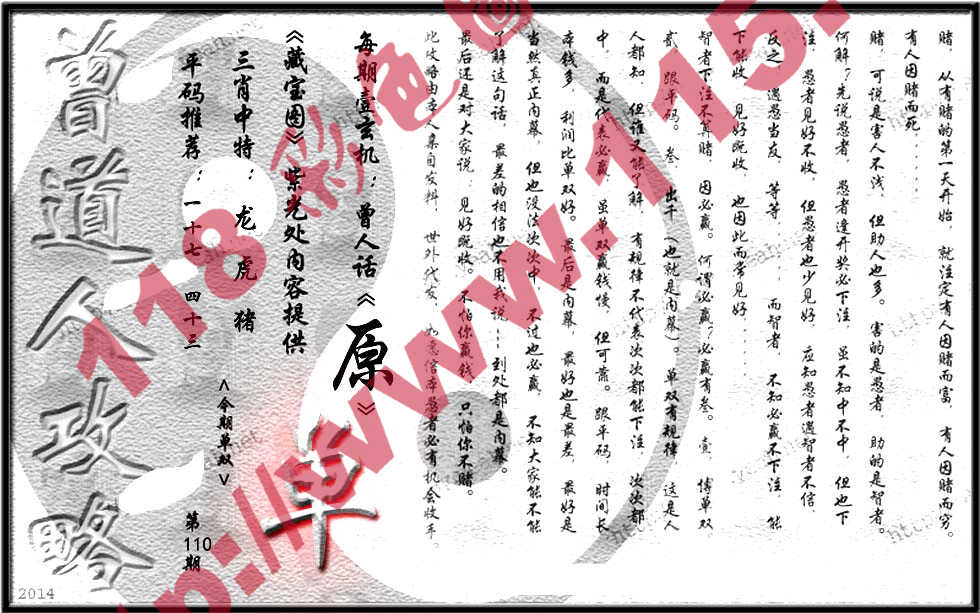 赌, 从有赌的第一天开始, 就注定有人因赌而富, 有人因赌而穷。
有人因赌而死......
赌, 可说是害人不浅, 但助人也多。害的是愚者, 助的是智者。
何解?先说愚者, 愚者逢开奖必下注 虽不知中不中, 但也下
注, 愚者见好不收, 但愚者也少见好 应知愚者遇智者不信,
反之, 遇愚当友, 等等...... 而智者, 不知必赢不下注, 能
下能收, 见好既收, 也因此而常见好......
智者下注不算赌, 因必赢。何谓必赢?必赢有叁。壹 博单双
贰 跟平码。叁, 出千 (也就是内幕)。单双有规律, 这是人
人都知, 但谁又能了解, 有规律不代表次次都能下注, 次次都
中, 而是代表必赢, 虽单双赢钱慢, 但可靠。跟平码, 时间长
本钱多 利润比单双好。最后是内幕, 最好也是最差, 最好是
当然真正内幕, 但也没法次次中, 不过也必赢, 不知大家能不能
了解这句话, 最差的相信也不用我说......到处都是内幕。
最后还是对大家说:见好既收。不怕你赢钱, 只怕你不赌。
此攻略由本人集自资料, 世外代友, 如意信本愚者必有机会收手。
每期壹玄机:曾人话《原》
《藏宝图》紫光处内容提供
三肖中特: 龙 虎 猪
平码推荐: 一十七 四十三
<今期单双>
单
第110期
曾道人攻略
2014
118彩色
http://www.115.